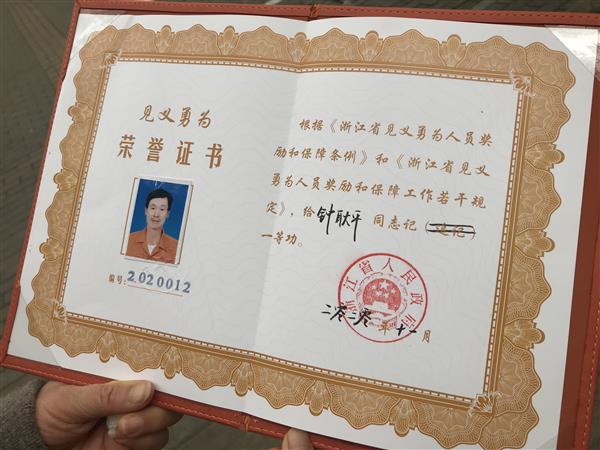 见义勇为
荣誉证书
编号:2020012
根据《浙江省见义勇为人员奖
励和保障条例》和《浙江省见义
勇为人员奖励和保障工作若干规
定》，给钟耿平同志记（追记）
一等功。
浙江省人民政府
二零二零年十一月